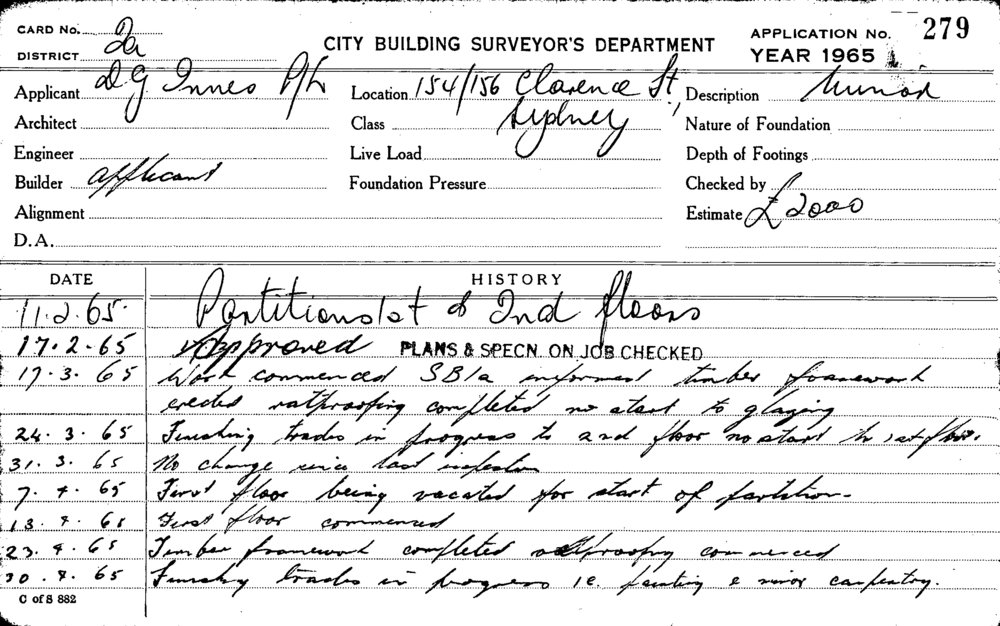 CARD No.
DISTRICT 2a
CITY BUILDING SURVEYOR'S DEPARTMENT
APPLICATION No. 279
YEAR 1965
Applicant D G Innes P/L
Location 154/156 Clarence St,
Sydney
Description
Architect
Class
Nature of Foundation
Engineer
Live Load
Depth of Footings
Builder applicant
Foundation Pressure
Checked by
Alignment
Estimate £2000
D.A.
DATE HISTORY
11.2.65. Partitions 1st & 2nd floors
17.2.65 Approved PLANS & SPECN. ON JOB CHECKED
17.3.65 Work commenced SB1a informed timber framework
erected ratproofing completed no start to glazing
24.3.65 Finishing trades in progress to 2nd floor no start to 1st floor.
31.3.65 No change since last inspection
7.4.65 First floor being vacated for start of partition-
13.4.65 First floor commenced
23.4.65 Timber framework completed ratproofing commenced
30.4.65 Finishing trades in progress ie. painting & minor carpentry.
C of S 882